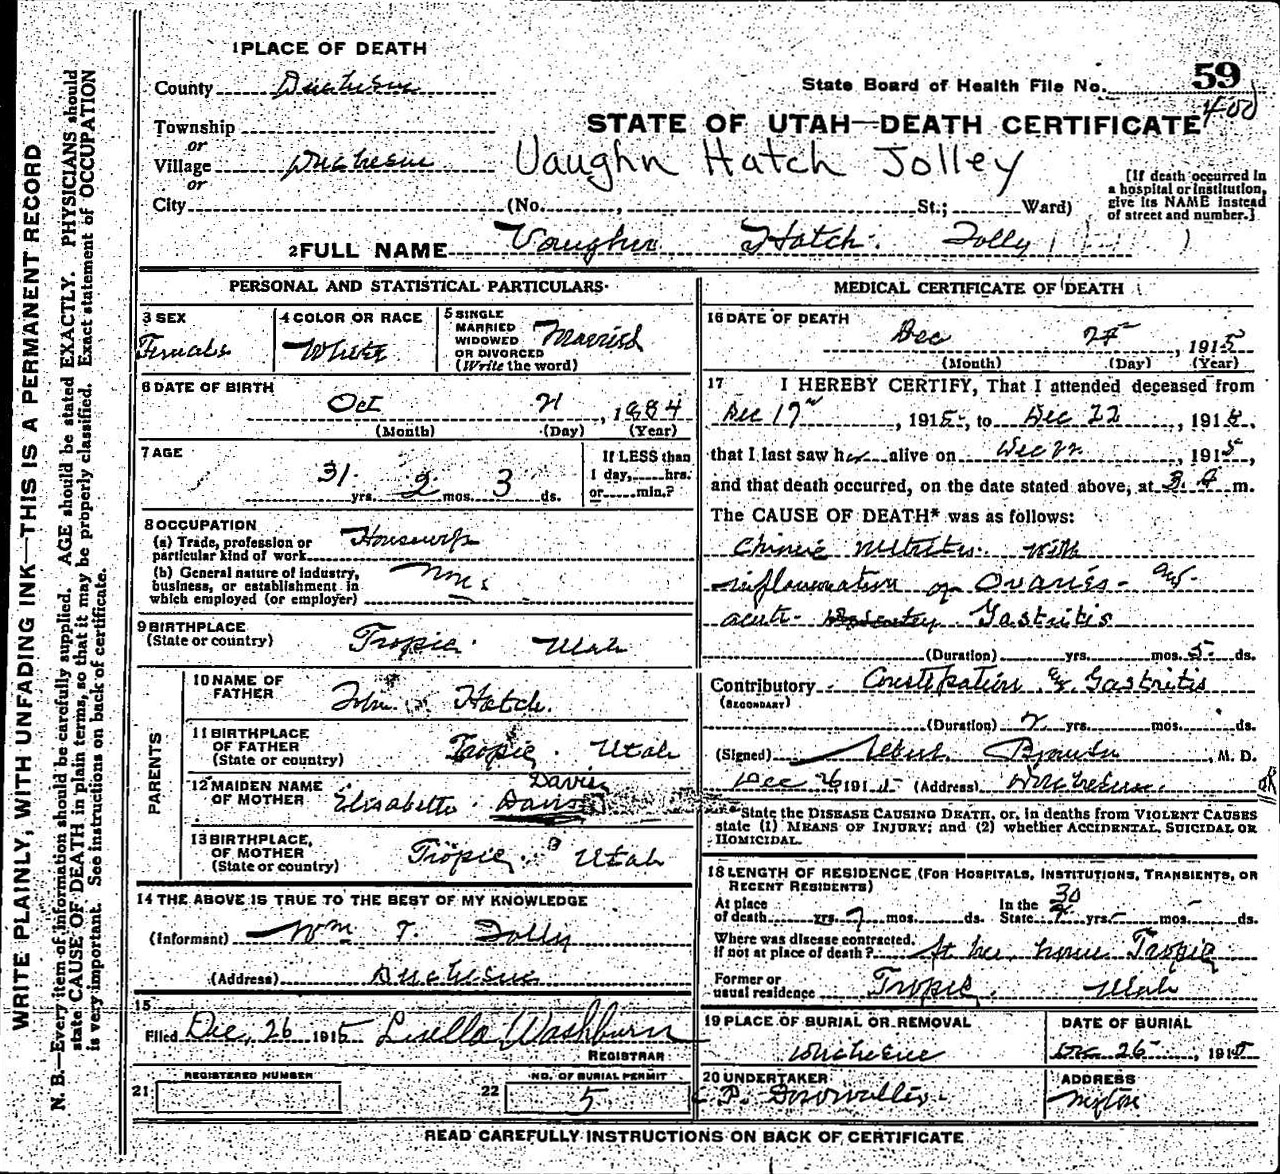 1 PLACE OF DEATH
County Duchesne
State Board of Health File No. 59
400
Township
or
Village Duchesne
or
City (No. , St.; Ward)
STATE OF UTAH—DEATH CERTIFICATE
Vaughn Hatch Jolley
[If death occurred in a hospital or institution, give its NAME instead of street and number.]
2 FULL NAME Vaughn Hatch Jolly
PERSONAL AND STATISTICAL PARTICULARS
3 SEX
Female
4 COLOR OR RACE
White
5 SINGLE MARRIED WIDOWED OR DIVORCED (Write the word)
Married
6 DATE OF BIRTH
Oct 21, 1884
(Month) (Day) (Year)
7 AGE
31 yrs. 2 mos. 3 ds.
If LESS than 1 day, hrs. or min.?
8 OCCUPATION
(a) Trade, profession or particular kind of work Housewife
(b) General nature of industry, business, or establishment in which employed (or employer)
9 BIRTHPLACE
(State or country) Tropic Utah
PARENTS
10 NAME OF FATHER John Hatch.
11 BIRTHPLACE OF FATHER (State or country) Tropic. Utah
12 MAIDEN NAME OF MOTHER Elisabette Davis
Davies
13 BIRTHPLACE, OF MOTHER (State or country) Tropic. Utah
14 THE ABOVE IS TRUE TO THE BEST OF MY KNOWLEDGE
(Informant) Wm T. Jolly
(Address) Duchesne
15
Filed Dec, 26 1915 Lisella Washburn
REGISTRAR
21 REGISTERED NUMBER
22 NO. OF BURIAL PERMIT
5
MEDICAL CERTIFICATE OF DEATH
16 DATE OF DEATH
Dec , 1915
(Month) (Day) (Year)
17 I HEREBY CERTIFY, That I attended deceased from
Dec 17 , 1915, to Dec 22 , 1915,
that I last saw her alive on Dec 22 , 1915,
and that death occurred, on the date stated above, at m.
The CAUSE OF DEATH* was as follows:
Chronic Metritis. with
inflamation of Ovaries- and
acute Gastritis
(Duration) yrs. mos. 5 ds.
Contributory Constipation & Gastritis
(SECONDARY)
(Duration) 2 yrs. mos. ds.
(Signed) , M. D.
Dec 26 1915 (Address) Duchesne.
*State the DISEASE CAUSING DEATH, or, in deaths from VIOLENT CAUSES state (1) MEANS OF INJURY; and (2) whether ACCIDENTAL, SUICIDAL OR HOMICIDAL.
18 LENGTH OF RESIDENCE (FOR HOSPITALS, INSTITUTIONS, TRANSIENTS, OR RECENT RESIDENTS)
At place of death yrs. 7 mos. ds. In the State 30 yrs. mos. ds.
Where was disease contracted, if not at place of death? At her home Tropic
Former or usual residence Tropic, Utah
19 PLACE OF BURIAL OR REMOVAL
Duchesne
DATE OF BURIAL
Dec 26 , 1915
20 UNDERTAKER
ADDRESS
Myton
READ CAREFULLY INSTRUCTIONS ON BACK OF CERTIFICATE
WRITE PLAINLY, WITH UNFADING INK—THIS IS A PERMANENT RECORD
N. B.—Every item of information should be carefully supplied. AGE should be stated EXACTLY. PHYSICIANS should
state CAUSE OF DEATH in plain terms, so that it may be properly classified. Exact statement of OCCUPATION
is very important. See instructions on back of certificate.